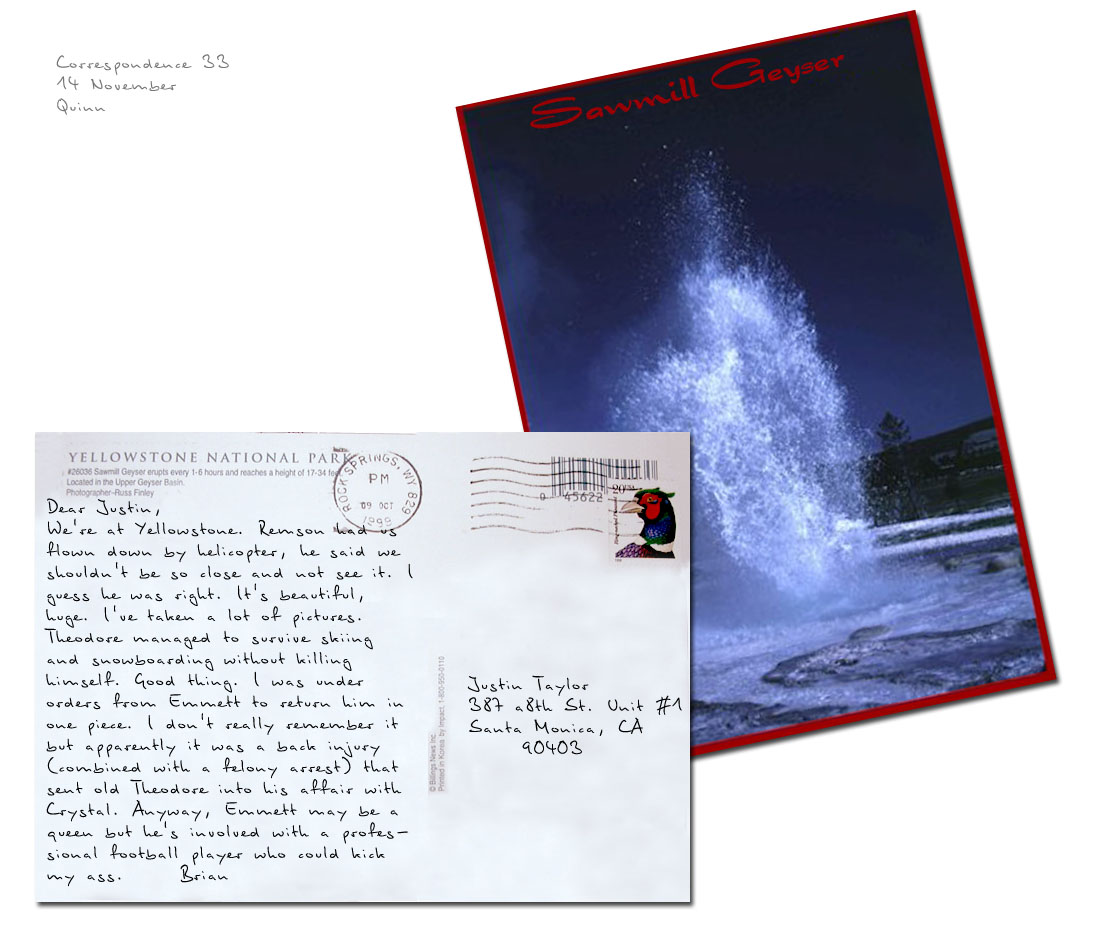 Correspondence 33
14 November
Quinn
Sawmill Geyser
YELLOWSTONE NATIONAL PARK
#26036 Sawmill Geyser erupts every 1-6 hours and reaches a height of 17-34 feet.
Located in the Upper Geyser Basin.
Photographer–Russ Finley
ROCK SPRINGS, WY 829
PM
09 OCT
1999
0 45622
20
Dear Justin,
We're at Yellowstone. Remson had us
flown down by helicopter, he said we
shouldn't be so close and not see it. I
guess he was right. It's beautiful,
huge. I've taken a lot of pictures.
Theodore managed to survive skiing
and snowboarding without killing
himself. Good thing. I was under
orders from Emmett to return him in
one piece. I don't really remember it
but apparently it was a back injury
(combined with a felony arrest) that
sent old Theodore into his affair with
Crystal. Anyway, Emmett may be a
queen but he's involved with a profes–
sional football player who could kick
my ass. Brian
© Billings News Inc.
Printed in Korea by Impact, 1-800-950-0110
Justin Taylor
387 a8th St. Unit #1
Santa Monica, CA
90403